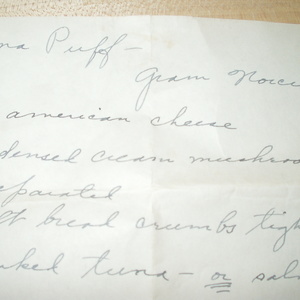 na Puff -
Gram Norc
american cheese
densed cream mushroo
eparated
of bread crumbs tigh
aked tuna - or sal